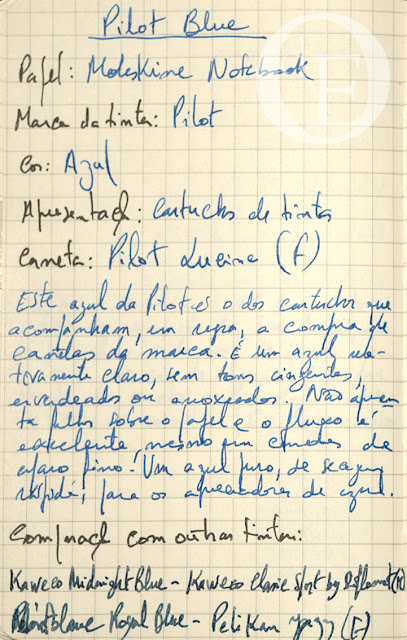 Pilot Blue
Papel: Moleskine Notebook
Marca da tinta: Pilot
Cor: Azul
Apresentação: Cartuchos de tinta
Caneta: Pilot Lucina (F)
Este azul da Pilot é o dos cartuchos que
acompanham, em regra, a compra de
canetas da marca. É um azul rela-
tivamente claro, sem tons cinzentos,
esverdeados ou arroxeados. Não apresen-
ta falhas sobre o papel e o fluxo é
excelente, mesmo em canetas de
aparo fino. Um azul puro, de secagem
rápida, para os apreciadores de azul.
Comparação com outras tintas:
Kaweco Midnight Blue - Kaweco Classic Sport by
Royal Blue - Pelikan (F)